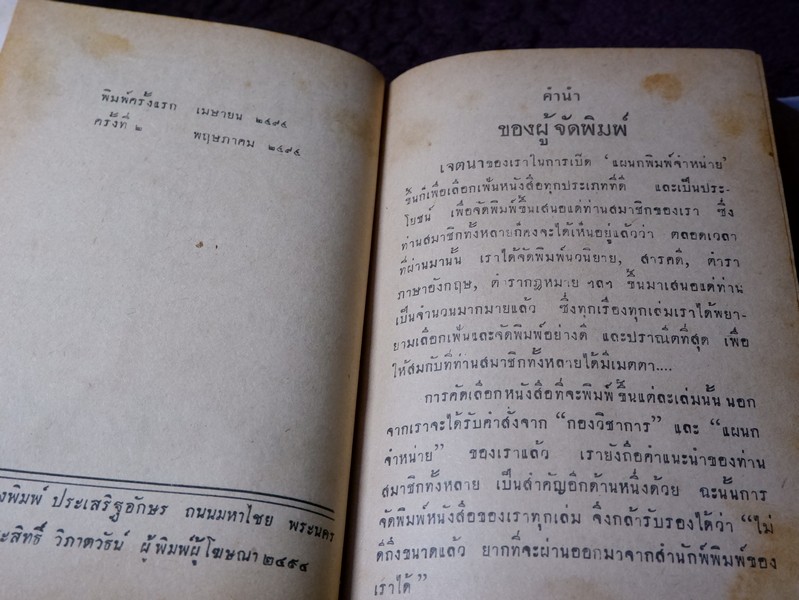 พิมพ์ครั้งแรก เมษายน ๒๔๙๔
ครั้งที่ ๒ พฤษภาคม ๒๔๙๔
ประเสริฐอักษร ถนนมหาไชย พระนคร
วิภาตวัธน์ ผู้พิมพ์ผู้โฆษณา ๒๔๙๔
คำนำ
ของผู้จัดพิมพ์
เจตนาของเราในการเปิด ‘แผนกพิมพ์จำหน่าย’
ขึ้นก็เพื่อเลือกเฟ้นหนังสือทุกประเภทที่ดี และเป็นประ-
โยชน์ เพื่อจัดพิมพ์ขึ้นเสนอแด่ท่านสมาชิกของเรา ซึ่ง
ท่านสมาชิกทั้งหลายก็คงจะได้เห็นอยู่แล้วว่า ตลอดเวลา
ที่ผ่านมานั้น เราได้จัดพิมพ์นวนิยาย, สารคดี, ตำรา
ภาษาอังกฤษ, ตำรากฎหมาย ฯลฯ ขึ้นมาเสนอแด่ท่าน
เป็นจำนวนมากมายแล้ว ซึ่งทุกเรื่องทุกเล่มเราได้พยา-
ยามเลือกเฟ้นและจัดพิมพ์อย่างดี และปราณีตที่สุด เพื่อ
ให้สมกับที่ท่านสมาชิกทั้งหลายได้มีเมตตา....
การคัดเลือกหนังสือที่จะพิมพ์ขึ้นแต่ละเล่มนั้น นอก
จากเราจะได้รับคำสั่งจาก “กองวิชาการ” และ “แผนก
จำหน่าย” ของเราแล้ว เรายังถือคำแนะนำของท่าน
สมาชิกทั้งหลาย เป็นสำคัญอีกด้านหนึ่งด้วย ฉะนั้นการ
จัดพิมพ์หนังสือของเราทุกเล่ม จึงกล้ารับรองได้ว่า “ไม่
ดีถึงขนาดแล้ว ยากที่จะผ่านออกมาจากสำนักพิมพ์ของ
เราได้”